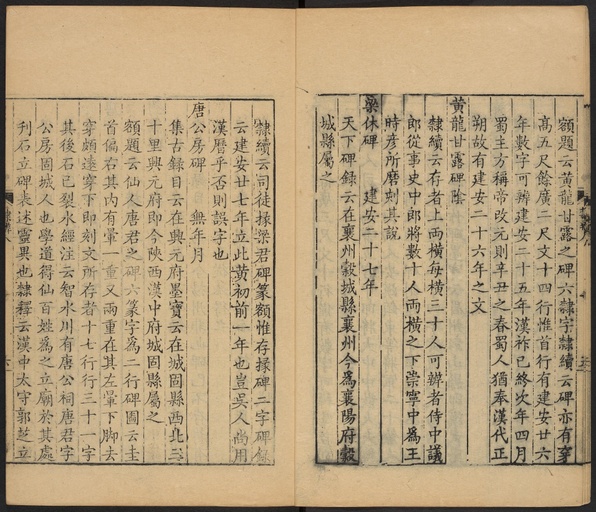 額題云黃龍甘露之碑六隸字隸續云碑亦有穿
高五尺餘廣二尺文十四行惟首行有建安廿六
年數字可辨建安二十五年漢祚已終次年四月
蜀主方稱帝改元則辛丑之春蜀人猶奉漢代正
朔故有建安二十六年之文
黃龍甘露碑陰
隸續云存者上兩橫每橫三十人可辨者侍中議
郎從事史中郎將數十人兩橫之下崇寧中為王
時彥所磨刻其說
梁休碑 建安二十七年
天下碑録云在襄州穀城縣襄州今為襄陽府穀
城縣屬之
隸續云司徒掾梁君碑篆額惟存掾碑二字碑錄
云建安廿七年立此黃初前一年也豈吳人尚用
漢曆乎否則誤字也
唐公房碑 無年月
集古錄目云在興元府墨寶云在城固縣西北三
十里興元府即今陜西漢中府城固縣屬之
額題云仙人唐君之碑六篆字為二行碑圖云圭
首偏右其內有暈一重又兩重在其左暈下腳去
穿頗遠穿下即刻文所存者十七行行三十一字
其後石已裂水經注云智水川有唐公祠唐君字
公房固城人也學道得仙百姓為之立廟於其處
刋石立碑表述靈異也隸釋云漢中太守郭芝立